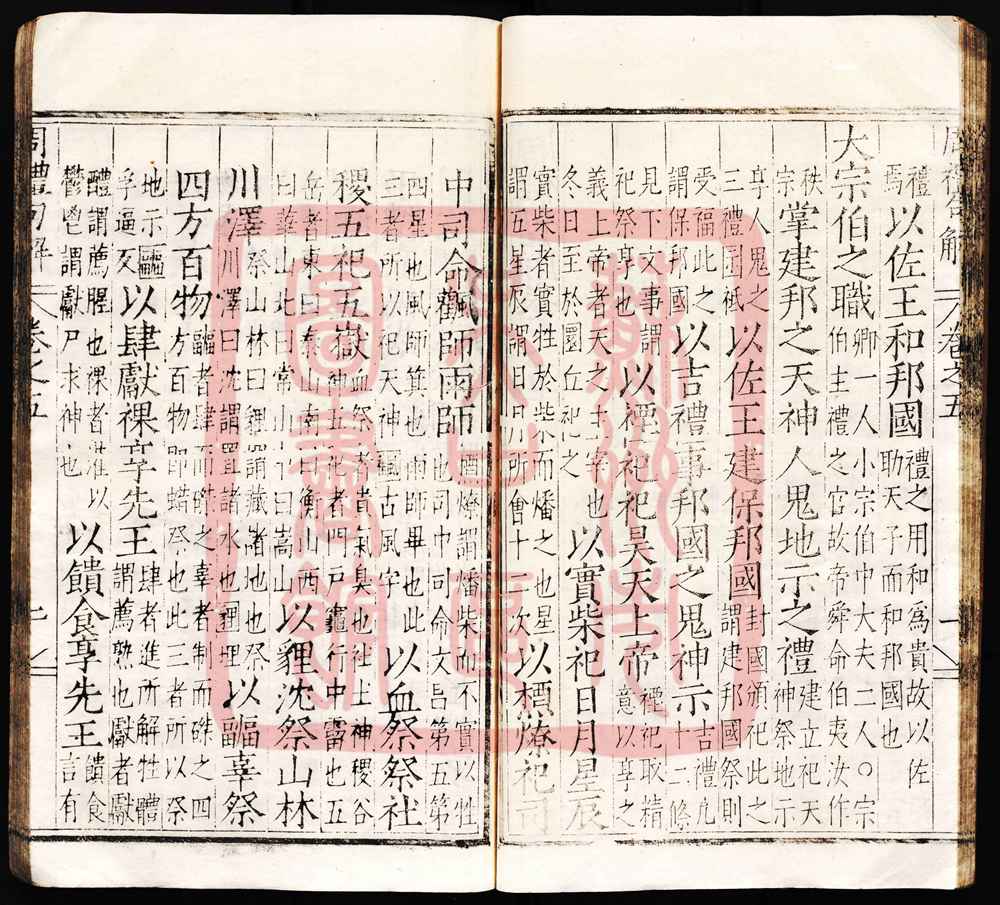 周禮句解 卷之五 一
禮焉以佐王和邦國禮之用和為貴故以佐助天子而和邦國也
大宗伯之職卿一人小宗伯中大夫二人○宗伯主禮之官故帝舜命伯夷汝作
秩宗掌建邦之天神人鬼地示之禮建立祀天神祭地示
享人鬼之三禮圖祗以佐王建保邦國封國頒祀此之謂建邦國祭則
受福此之謂保邦國以吉禮事邦國之鬼神示吉禮凡十二條
見下文事謂祀祭享也以禋祀祀昊天上帝禋祀取精意以享之
義上帝者天之主宰也冬日至於圜丘祀之以實柴祀日月星辰
實柴者實牲於柴而燔之也星謂五星辰謂日月所會十二次以槱燎祀司
中司命飌師雨師槱燎謂燔柴而不實以牲也司中司命文昌第五第
四星也風師箕也雨師畢也此三者所以祀天神飌古風字以血祭祭社
稷五祀五嶽血祭者貴氣臭也社土神稷谷神五祀者門戶竈行中霤也五
岳者東曰泰山南曰衡山西曰華山北曰常山中曰嵩山以貍沈祭山林
川澤祭山林曰貍謂藏諸地也祭川澤曰沈謂置諸水也貍埋以疈辜祭
四方百物疈者肆而磔之辜者制而磔之四方百物即蜡祭也此三者所以祭
地示疈孚逼反以肆獻祼享先王肆者進所解牲體謂薦熟也獻者獻
醴謂薦腥也祼者灌以鬱鬯謂獻尸求神也以饋食享先王饋食言有
周禮句解 卷之五 一